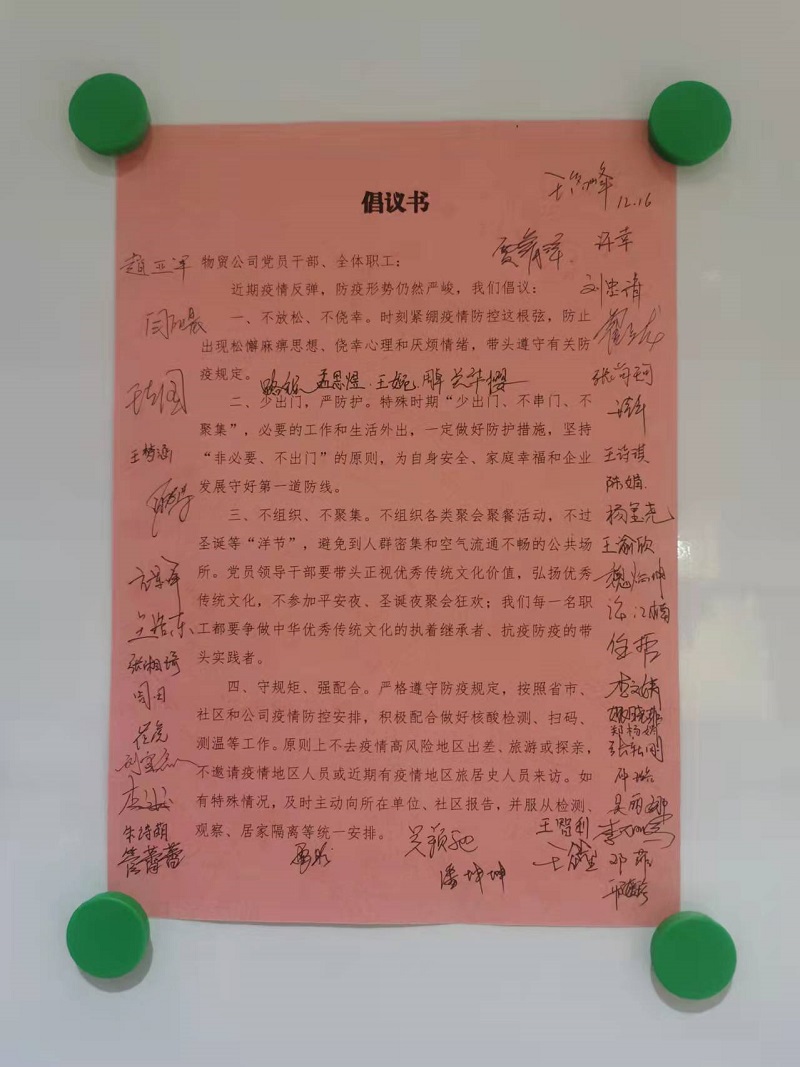 倡议书
12.16
许幸
赵亚洋
物贸公司党员干部、全体职工：
刘忠倩
近期疫情反弹，防疫形势仍然严峻，我们倡议：
一、不放松、不侥幸。时刻紧绷疫情防控这根弦，防止
出现松懈麻痹思想、侥幸心理和厌烦情绪，带头遵守有关防
疫规定。
孟思煜
二、少出门，严防护。特殊时期“少出门、不串门、不
聚集”，必要的工作和生活外出，一定做好防护措施，坚持
王梦涵
“非必要、不出门”的原则，为自身安全、家庭幸福和企业
王诗琪
发展守好第一道防线。
陈娟
三、不组织、不聚集。不组织各类聚会聚餐活动，不过
圣诞等“洋节”，避免到人群密集和空气流通不畅的公共场
王渝欣
所。党员领导干部要带头正视优秀传统文化价值，弘扬优秀
传统文化，不参加平安夜、圣诞夜聚会狂欢；我们每一名职
工都要争做中华优秀传统文化的执着继承者、抗疫防疫的带
头实践者。
张湘琦
四、守规矩、强配合。严格遵守防疫规定，按照省市、
李文婧
社区和公司疫情防控安排，积极配合做好核酸检测、扫码、
测温等工作。原则上不去疫情高风险地区出差、旅游或探亲，
不邀请疫情地区人员或近期有疫情地区旅居史人员来访。如
有特殊情况，及时主动向所在单位、社区报告，并服从检测、
吴丽娜
观察、居家隔离等统一安排。
朱诗萌
王智利
管蕾蕾
潘坤坤
邓菲